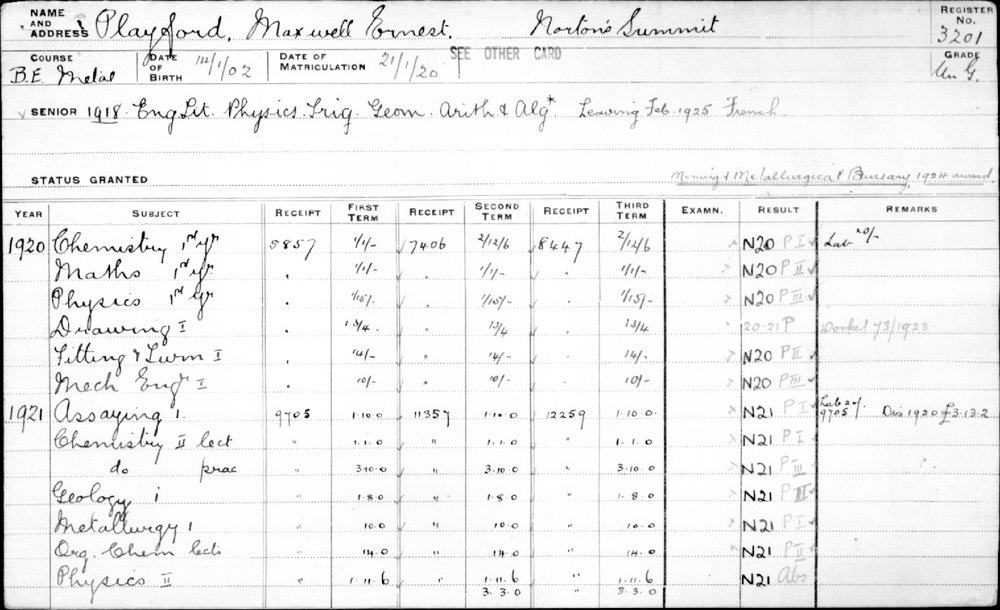 NAME AND ADDRESS Playford, Maxwell Ernest. Norton's Summit REGISTER No. 3201
COURSE B.E. Metal DATE OF BIRTH 14/1/02 DATE OF MATRICULATION 21/1/20 SEE OTHER CARD GRADE Un G.
SENIOR 1918 Eng Lit. Physics. Trig. Geom. Arith & Alg* Leaving Feb. 1925 French
STATUS GRANTED Mining & Metallurgical Bursary 1924 award
YEAR SUBJECT RECEIPT FIRST TERM RECEIPT SECOND TERM RECEIPT THIRD TERM EXAMN. RESULT REMARKS
1920 Chemistry 1st yr 5857 1/1/- 7406 2/12/6 8447 2/12/6 N20 P I Lab 20/-
Maths 1st yr 1/1/- 1/1/- 1/1/- N20 P II
Physics 1st yr 1/15/- 1/15/- 1/15/- N20 P III
Drawing I 13/4 13/4 13/4 20-21 P Docket 73/1923
Fitting & Turn I 14/- 14/- 14/- N20 P II
Mech Engr I 10/- 10/- 10/- N20 P III
1921 Assaying 1. 9705 1.10.0 11357 1.10.0 12259 1.10.0 N21 P I Lab 20/. 9705 Dis 1920 £3.13.2
Chemistry II lect " 1.1.0 " 1.1.0 " 1.1.0 N21 P I
do prac " 3.10.0 " 3.10.0 " 3.10.0 N21 P III
Geology 1 " 1.8.0 " 1.8.0 " 1.8.0 N21 P II
Metallurgy 1 " 10.0 " 10.0 " 10.0 N21 P I
Org. Chem lects " 14.0 " 14.0 " 14.0 N21 P II
Physics II " 1.11.6 1.11.6 " 1.11.6 N21 Abs
3.3.0 3.3.0